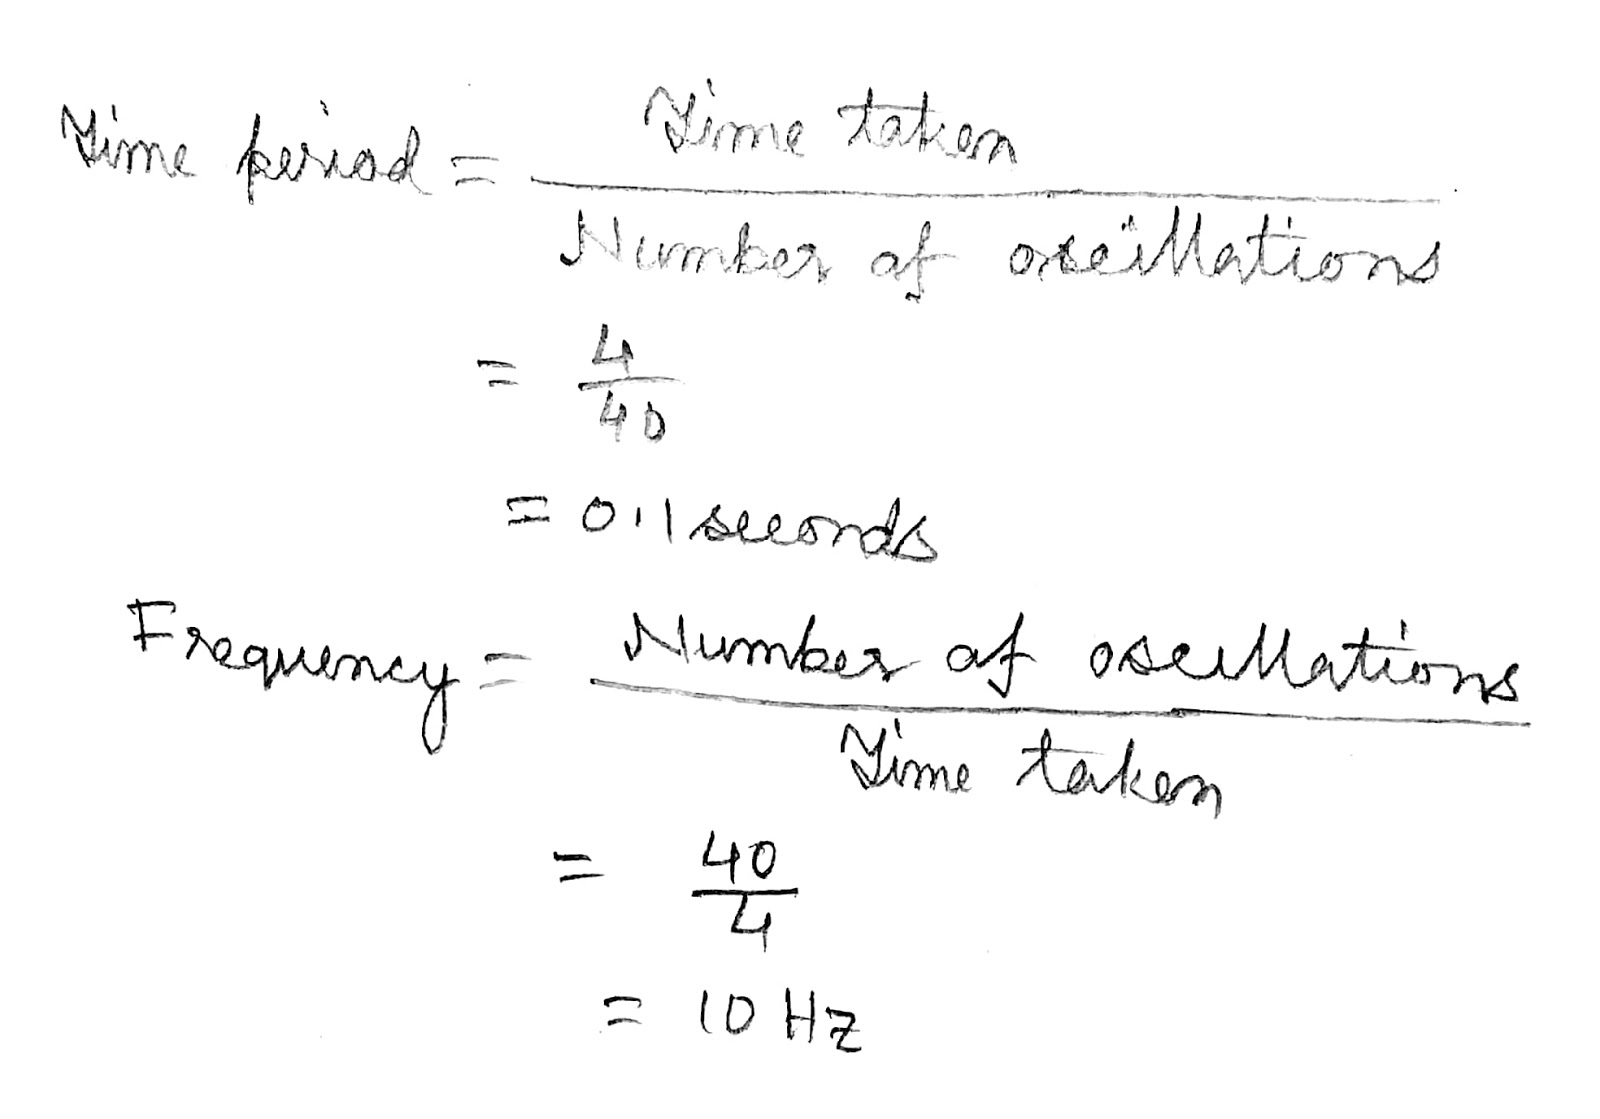 Time period = Time taken / Number of oscillations
= 4/40
= 0.1 seconds
Frequency = Number of oscillations / Time taken
= 40/4
= 10 Hz